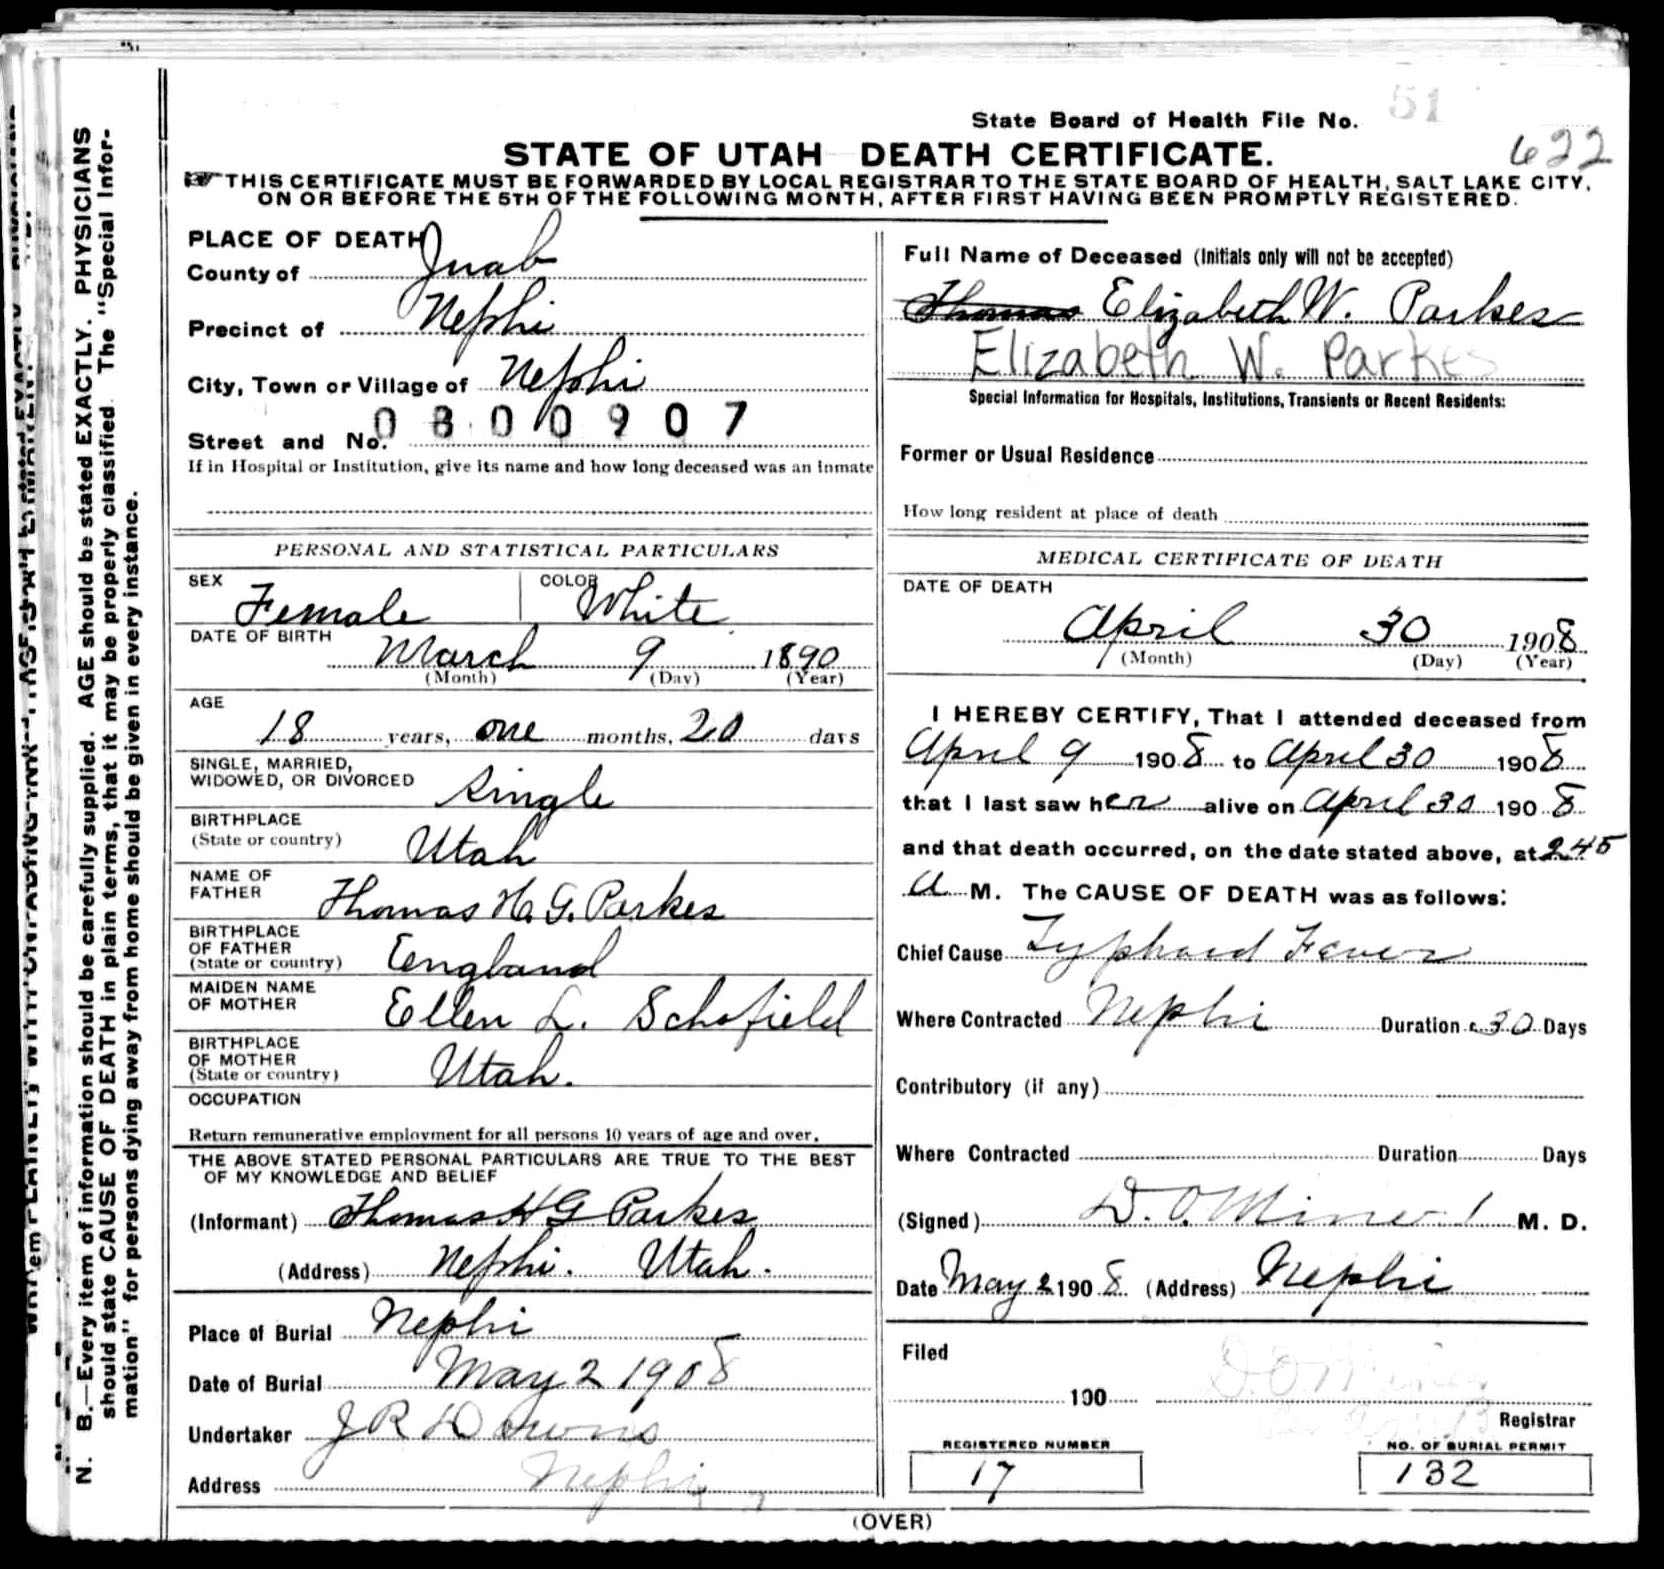 State Board of Health File No. 51
622
STATE OF UTAH DEATH CERTIFICATE.
THIS CERTIFICATE MUST BE FORWARDED BY LOCAL REGISTRAR TO THE STATE BOARD OF HEALTH, SALT LAKE CITY,
ON OR BEFORE THE 5TH OF THE FOLLOWING MONTH, AFTER FIRST HAVING BEEN PROMPTLY REGISTERED.
PLACE OF DEATH
County of Juab
Precinct of Nephi
City, Town or Village of Nephi
0300907
Street and No.
If in Hospital or Institution, give its name and how long deceased was an inmate
PERSONAL AND STATISTICAL PARTICULARS
SEX Female COLOR White
DATE OF BIRTH
March 9 1890
(Month) (Day) (Year)
AGE
18 years, one months, 20 days
SINGLE, MARRIED,
WIDOWED, OR DIVORCED Single
BIRTHPLACE
(State or country) Utah
NAME OF
FATHER Thomas H. G. Parkes
BIRTHPLACE
OF FATHER
(State or country) England
MAIDEN NAME
OF MOTHER Ellen L. Schofield
BIRTHPLACE
OF MOTHER
(State or country) Utah.
OCCUPATION
Return remunerative employment for all persons 10 years of age and over.
THE ABOVE STATED PERSONAL PARTICULARS ARE TRUE TO THE BEST
OF MY KNOWLEDGE AND BELIEF
(Informant) Thomas H G Parkes
(Address) Nephi. Utah.
Place of Burial Nephi
Date of Burial May 2 1908
Undertaker J R Downs
Address Nephi
Full Name of Deceased (Initials only will not be accepted)
Thomas Elizabeth W. Parkes
Elizabeth W. Parkes
Special Information for Hospitals, Institutions, Transients or Recent Residents:
Former or Usual Residence
How long resident at place of death
MEDICAL CERTIFICATE OF DEATH
DATE OF DEATH
April 30 1908
(Month) (Day) (Year)
I HEREBY CERTIFY, That I attended deceased from
April 9 1908 to April 30 1908
that I last saw her alive on April 30 1908
and that death occurred, on the date stated above, at 2 45
A M. The CAUSE OF DEATH was as follows:
Chief Cause Typhoid Fever
Where Contracted Nephi Duration 30 Days
Contributory (if any)
Where Contracted Duration Days
(Signed) D. O. Miner M. D.
Date May 2 1908 (Address) Nephi
Filed
190 D. O. Miner
Registrar
REGISTERED NUMBER
17
NO. OF BURIAL PERMIT
132
(OVER)
N. B.—Every item of information should be carefully supplied. AGE should be stated EXACTLY. PHYSICIANS
should state CAUSE OF DEATH in plain terms, that it may be properly classified. The "Special Infor-
mation" for persons dying away from home should be given in every instance.